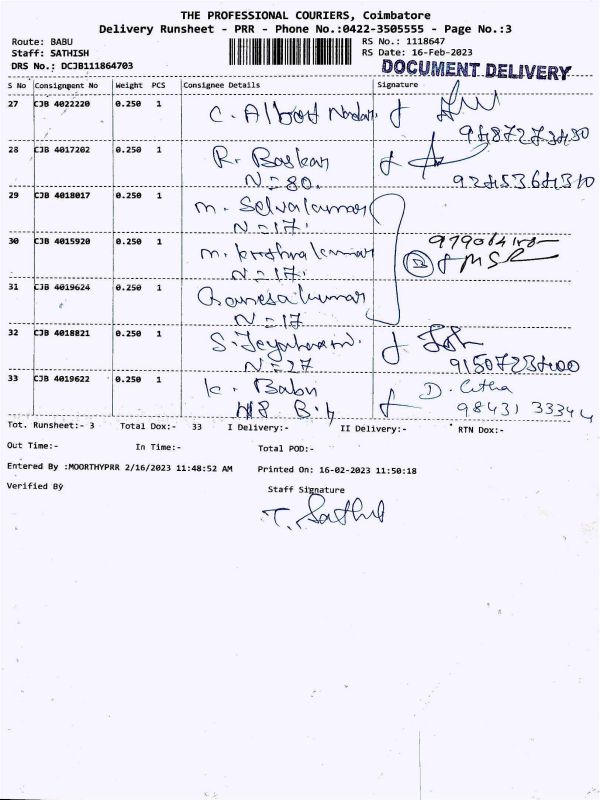 THE PROFESSIONAL COURIERS, Coimbatore
Delivery Runsheet - PRR - Phone No.:0422-3505555 - Page No.:3
Route: BABU
Staff: SATHISH
DRS No.: DCJB111864703
RS No.: 1118647
RS Date: 16-Feb-2023
DOCUMENT DELIVERY
S No Consignment No Weight PCS Consignee Details Signature
27 CJB 4022220 0.250 1 C. Albert Nadar
9487273480
28 CJB 4017202 0.250 1 R. Baskar
N=80. 9245364310
29 CJB 4018017 0.250 1 M. Selvakumar
N=17.
30 CJB 4015920 0.250 1 M. Krishna kumar
N=17.
31 CJB 4019624 0.250 1 Ganesa kumar
N=17
32 CJB 4018821 0.250 1 S. Jeyaharam.
N=27 9150723400
33 CJB 4019622 0.250 1 K. Babu D. Citha
98431 33344
Tot. Runsheet:- 3 Total Dox:- 33 I Delivery:- II Delivery:- RTN Dox:-
Out Time:- In Time:- Total POD:-
Entered By :MOORTHYPRR 2/16/2023 11:48:52 AM Printed On: 16-02-2023 11:50:18
Verified By Staff Signature
T. Sathis